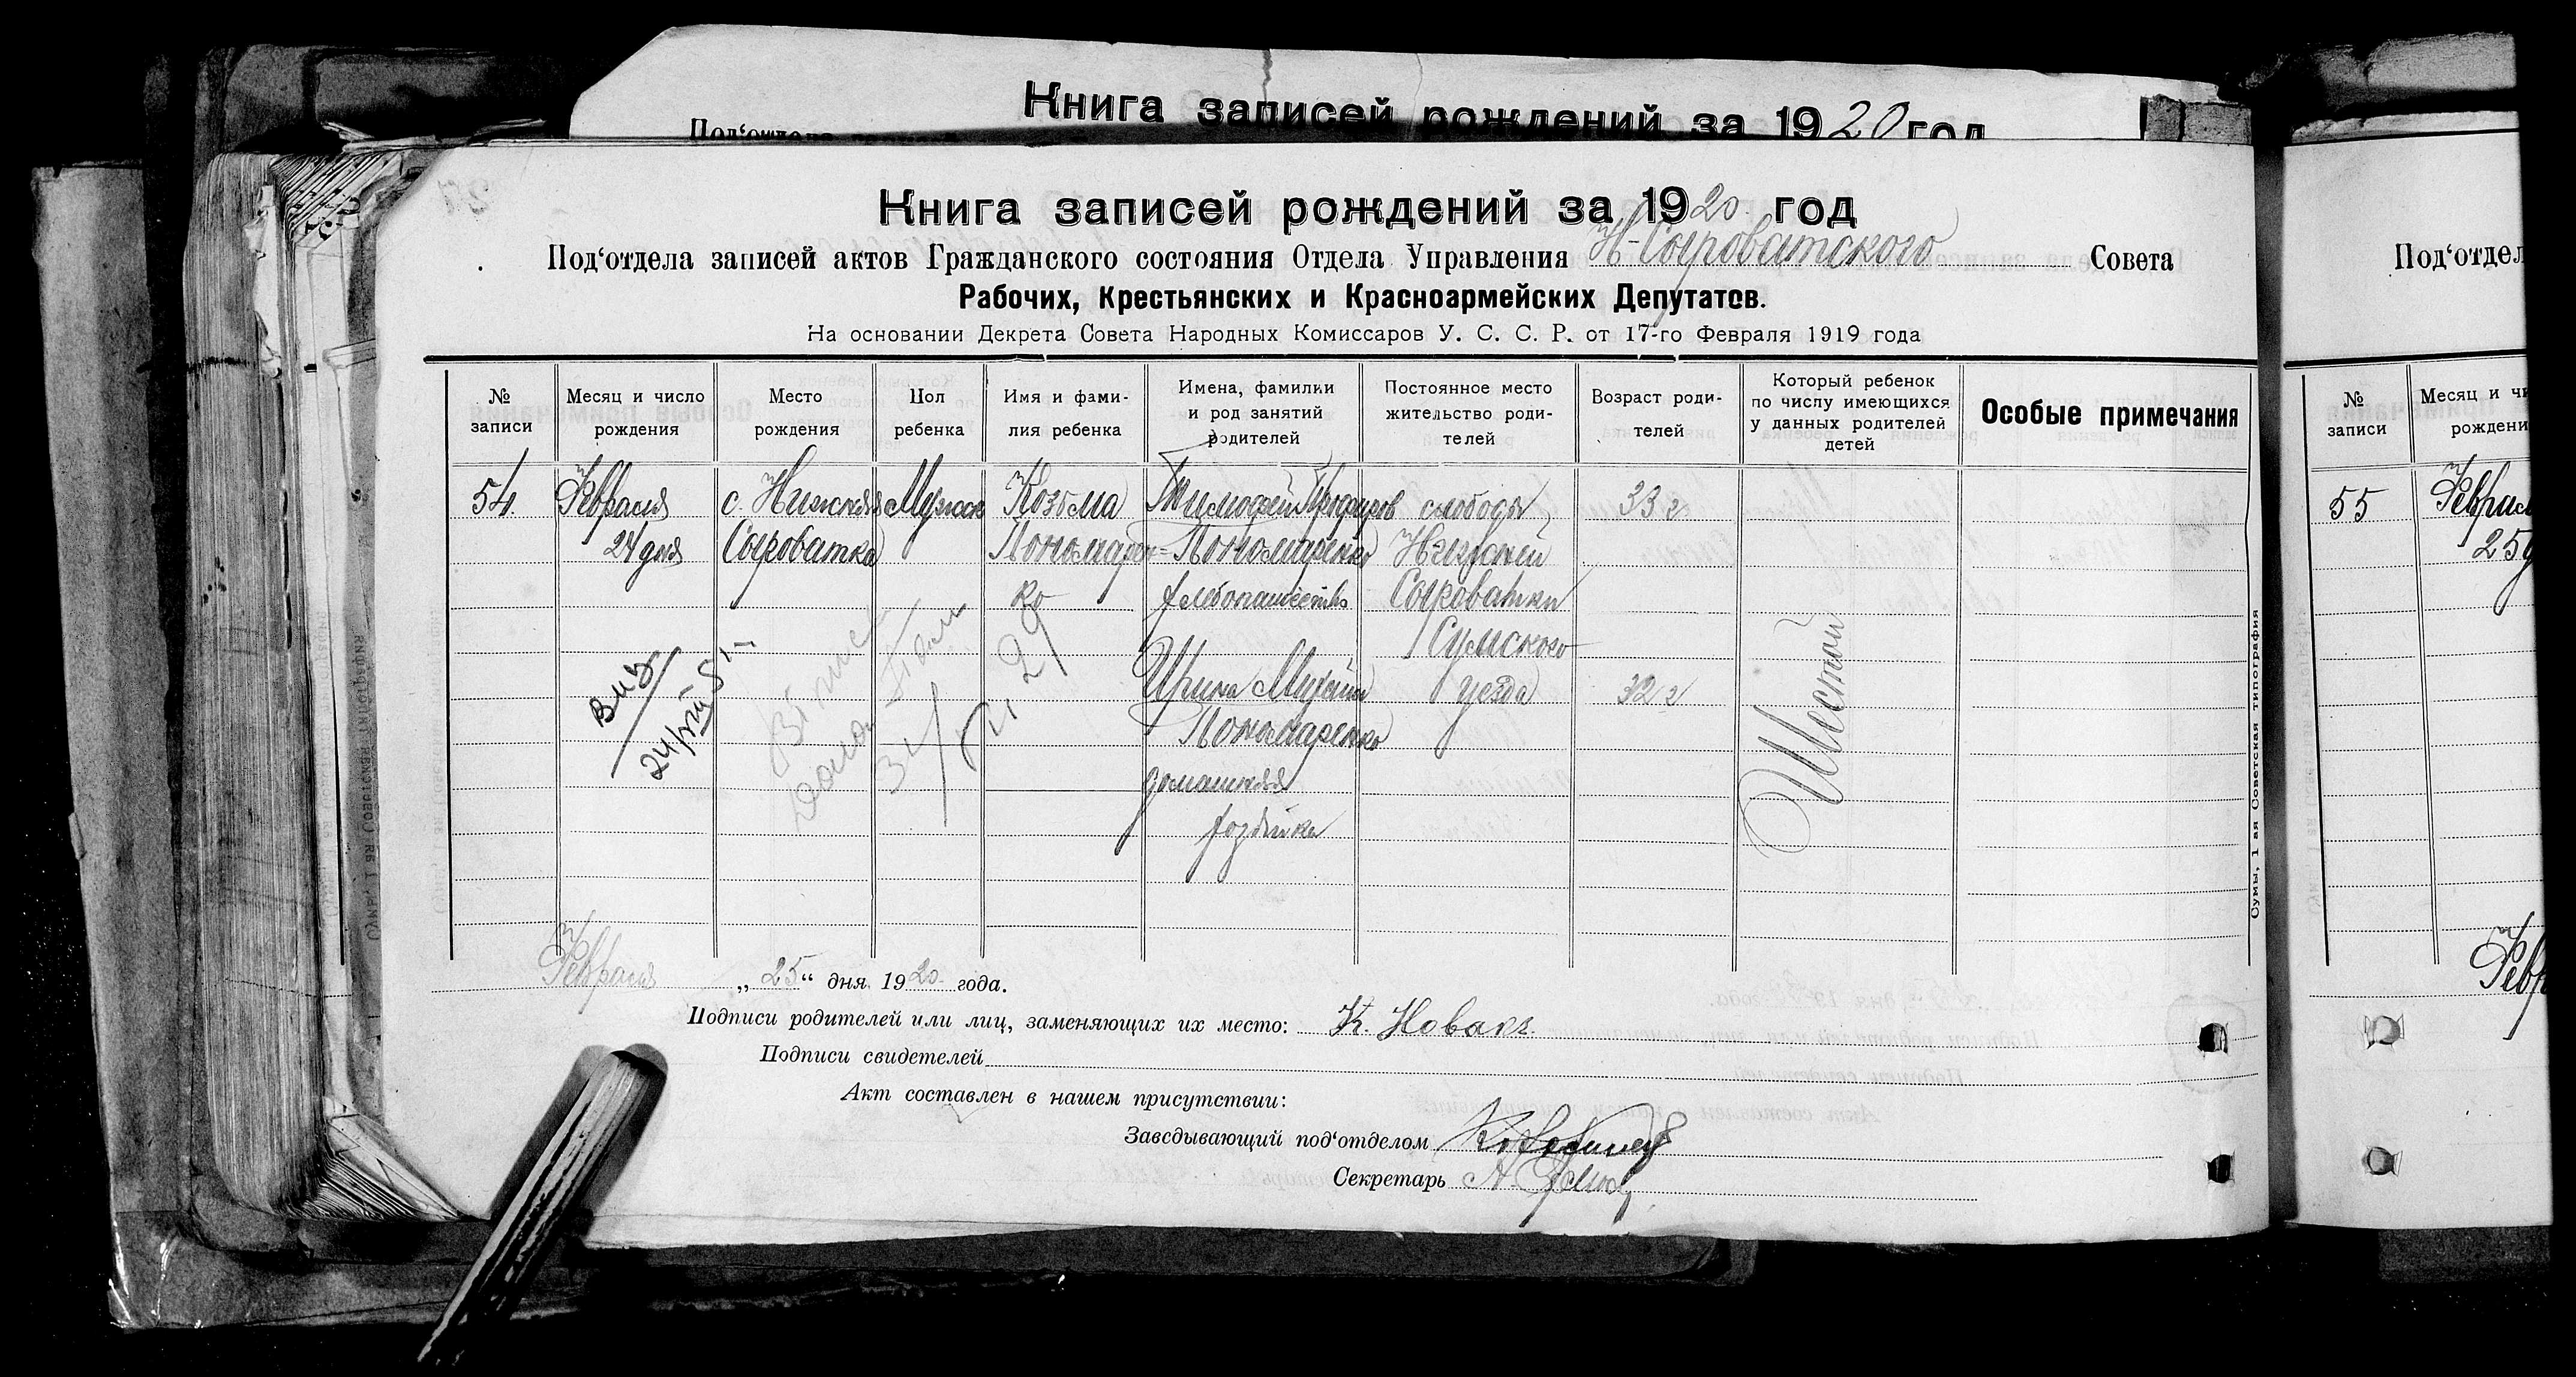 Книга записей рождений за 1920 год
Книга записей рождений за 1920 год
Под‘отдела записей актов Гражданского состояния Отдела Управления Н-Сыроватского Совета
Рабочих, Крестьянских и Красноармейских Депутатов.
На основании Декрета Совета Народных Комиссаров У. С. С. Р. от 17-го Февраля 1919 года
№ записи
Месяц и число рождения
Место рождения
Пол ребенка
Имя и фамилия ребенка
Имена, фамилии и род занятий родителей
Постоянное место жительство родителей
Возраст родителей
Который ребенок по числу имеющихся у данных родителей детей
Особые примечания
54
Февраля
24 дня
с. Нижняя
Сыроватка
Мужск
Козьма
Пономарен=
ко
Тимофей
Пономаренко
хлебопашество
Ирина
Пономаренко
домашняя
хозяйка
слободы
Нижней
Сыроватки
Сумского
уезда
33 г
32 г
Шестой
Февраля „25“ дня 1920 года.
Подписи родителей или лиц, заменяющих их место: К. Новак
Подписи свидетелей
Акт составлен в нашем присутствии:
Заведывающий под‘отделом
Секретарь
Сумы, 1 ая Советская типография
Под‘отдел
№ записи
55
Февраля
25